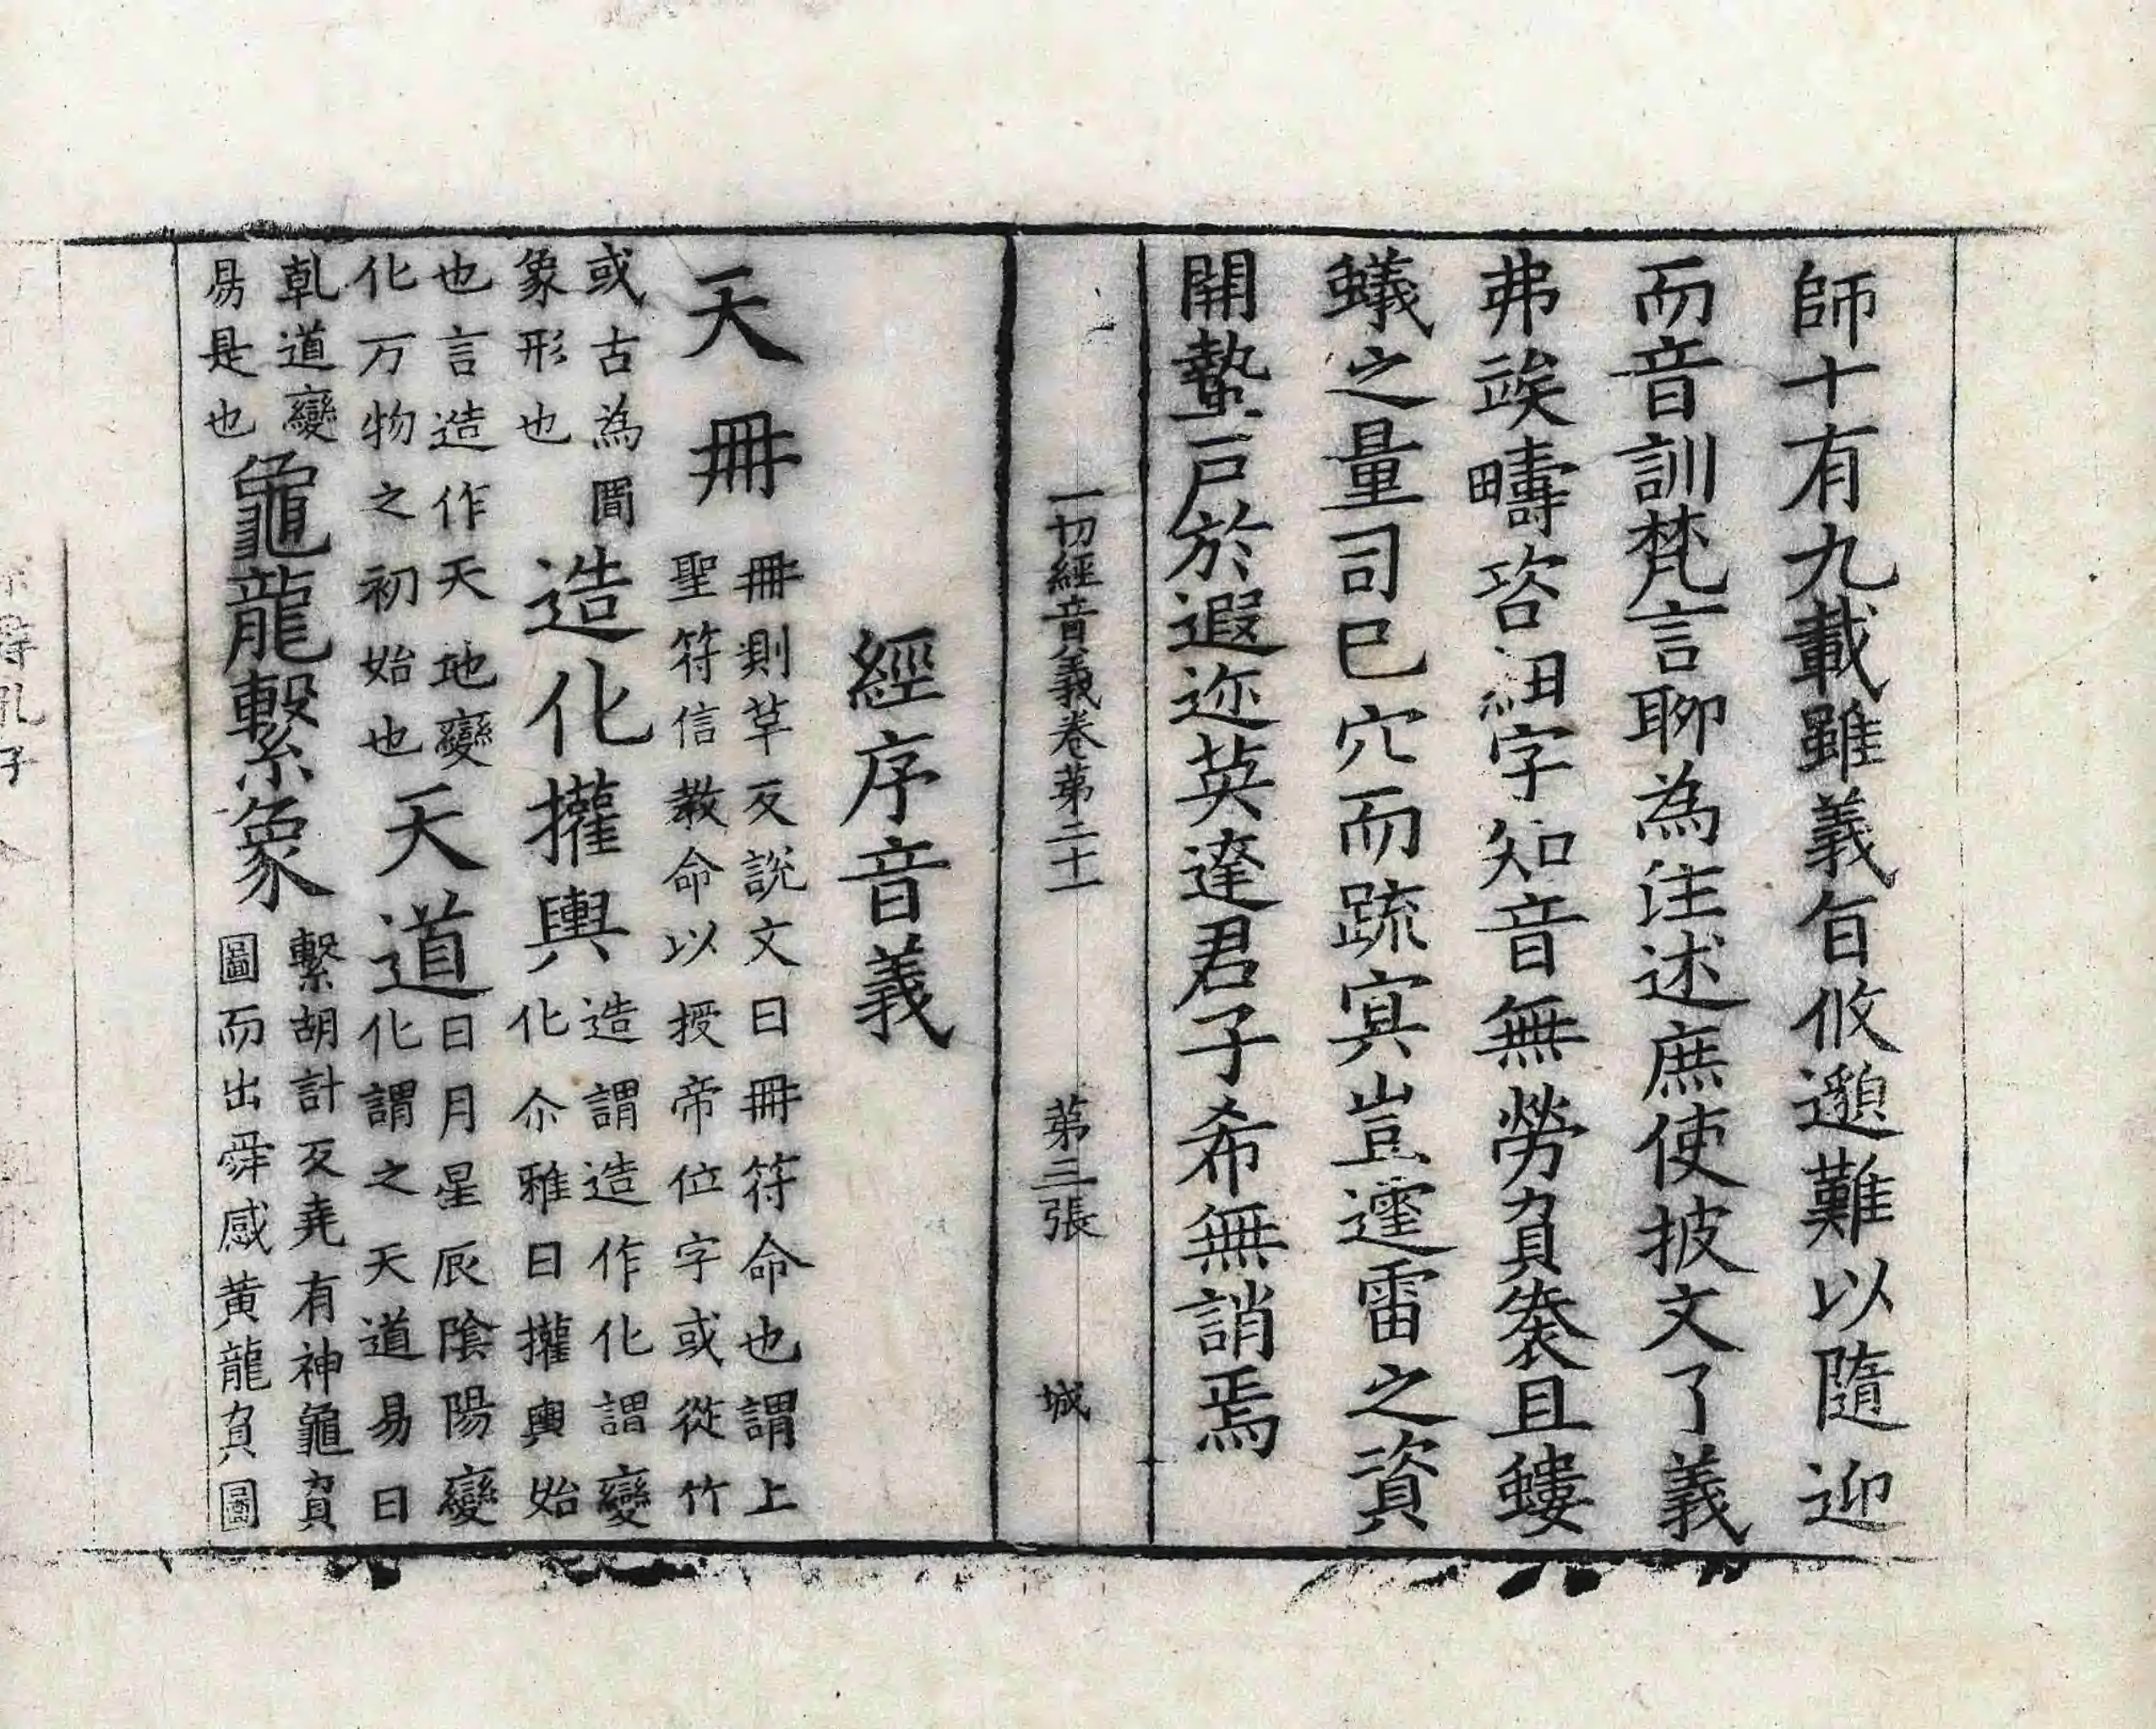 師十有九載雖義旨攸邈難以隨迎
而音訓梵言聊為注述庶使披文了義
弗竢疇咨紐字知音無勞負袠且螻
蟻之量司巳穴而疏㝠豈𨗿雷之資
開蟄戸於遐迩英達君子希無誚焉
一切經音義卷苐二十一
苐三張
城
經序音義
天冊
冊則草反說文曰冊符命也謂上
聖符信教命以授帝位字或從竹
或古為𠕋
象形也
造化攉輿
造謂造作化謂變
化尒雅曰攉輿始
也言造作天地變
化万物之初始也
天道
日月星辰陰陽變
化謂之天道易曰
乹道變
易是也
龜龍繫象
繫胡計反堯有神龜負
圖而出舜感黄龍負圖